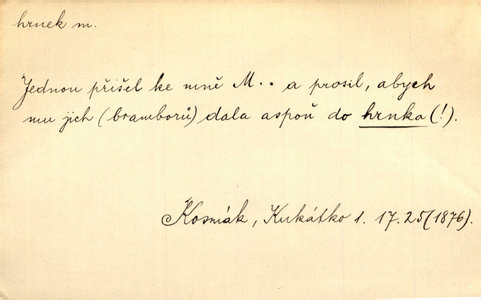 hrnek m.
Jednou přišel ke mně M.. a prosil, abych
mu jich (bramborů) dala aspoň do hrnka (!).
Kosmák, Kukátko 1. 17.25 (1876).